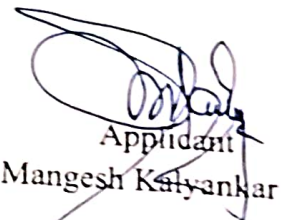 Applicant
Mangesh Kalyankar